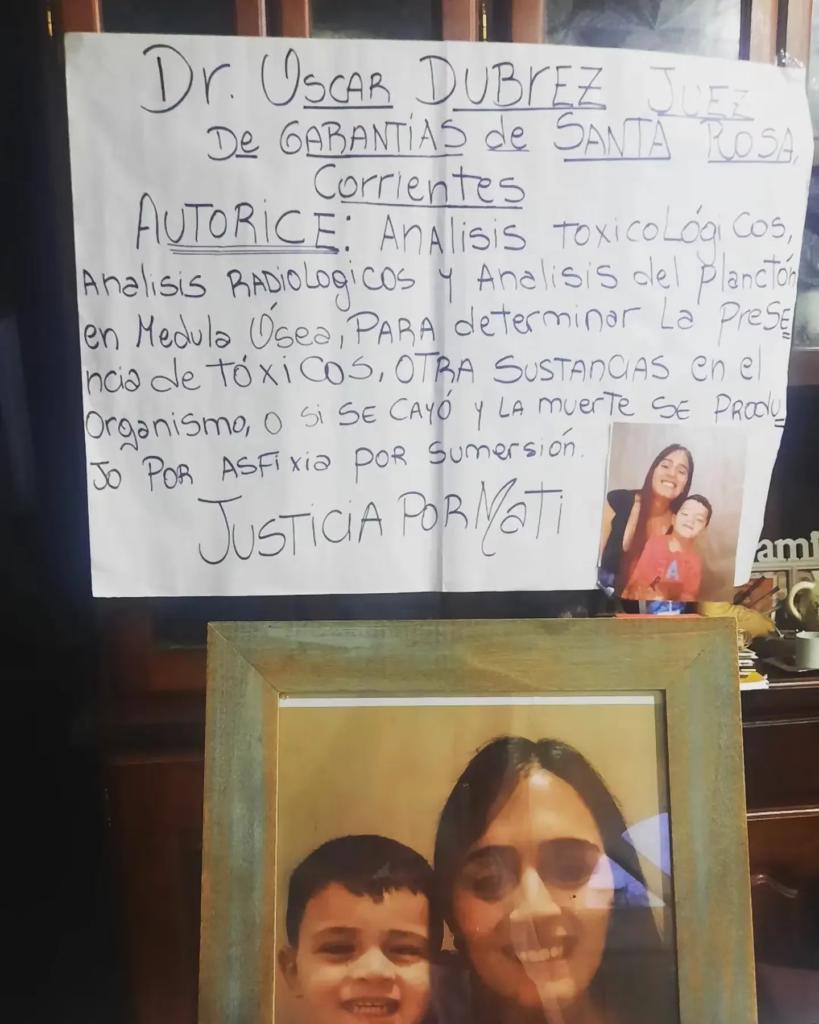 Dr. OSCAR DUBREZ JUEZ
De GARANTÍAS de SANTA ROSA,
Corrientes
AUTORICE: ANALISIS TOXICOLÓGICOS,
Analisis RADIOLOGICOS y Analisis del Planctón
en Medula Ósea, PARA determinar La PreSE
ncia de TÓXICOS, OTRA SUSTANCIAS en el
Organismo, O Si SE CAYÓ y LA muerte SE PRODU
JO POR ASFIXIA POR SUMERSIÓN.
JUSTICIA POR MATI
ami
A